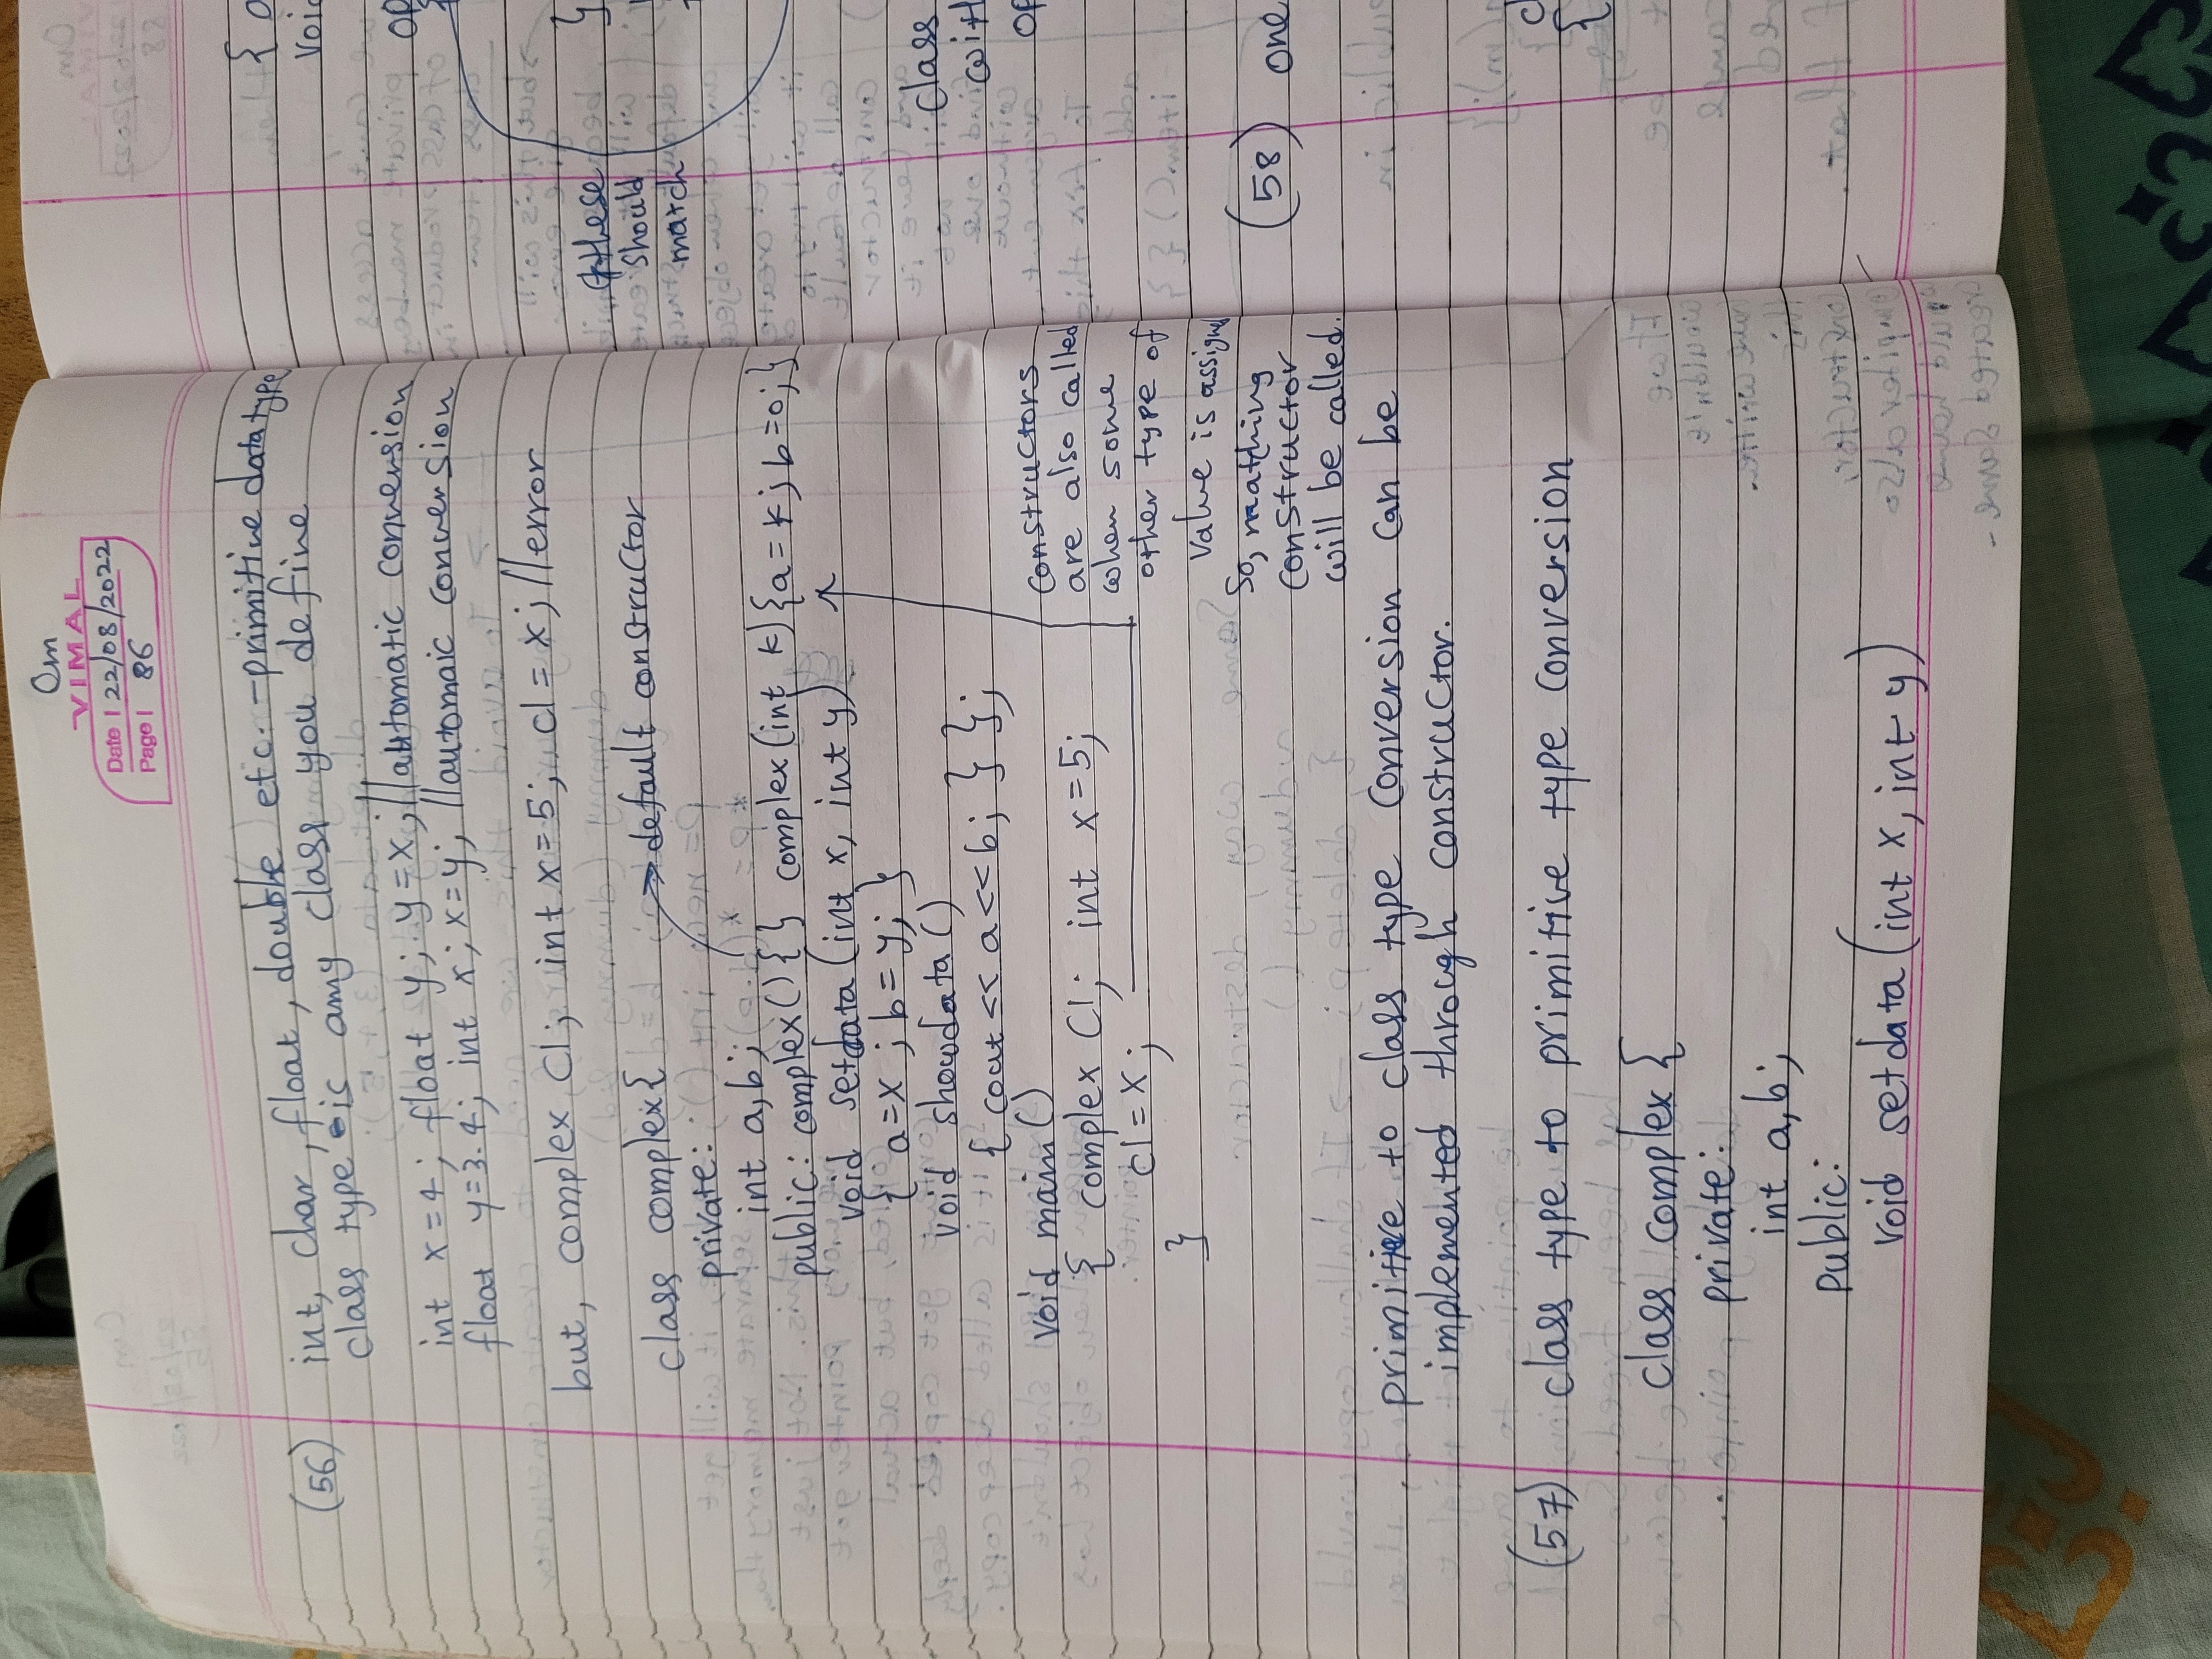 Om
VIMAL
Date | 22/08/2022
Page | 86
(56) int, char, float, double etc. - primitive datatype
class type is any class you define
int x=4; float y; y=x; //automatic conversion
float y=3.4; int x; x=y; //automaic conversion
but, complex C1; int x=5; c1=x; //error
class complex{ → default constructor
private:
int a,b;
public: complex(){} complex(int k){a=k; b=0;}
void setdata(int x, int y)
{ a=x; b=y; }
void showdata()
{ cout << a<<b; } };
void main()
{ complex C1; int x=5;
c1=x;
}
constructors
are also called
when some
other type of
value is assigned
So, matching
constructor
will be called.
primitive to class type conversion can be
implemented through constructor.
(57) class type to primitive type conversion
class complex {
private:
int a,b;
public:
void setdata(int x, int y)
{
void
OP
}
these
should
match
class
with
OP
(58) one
{